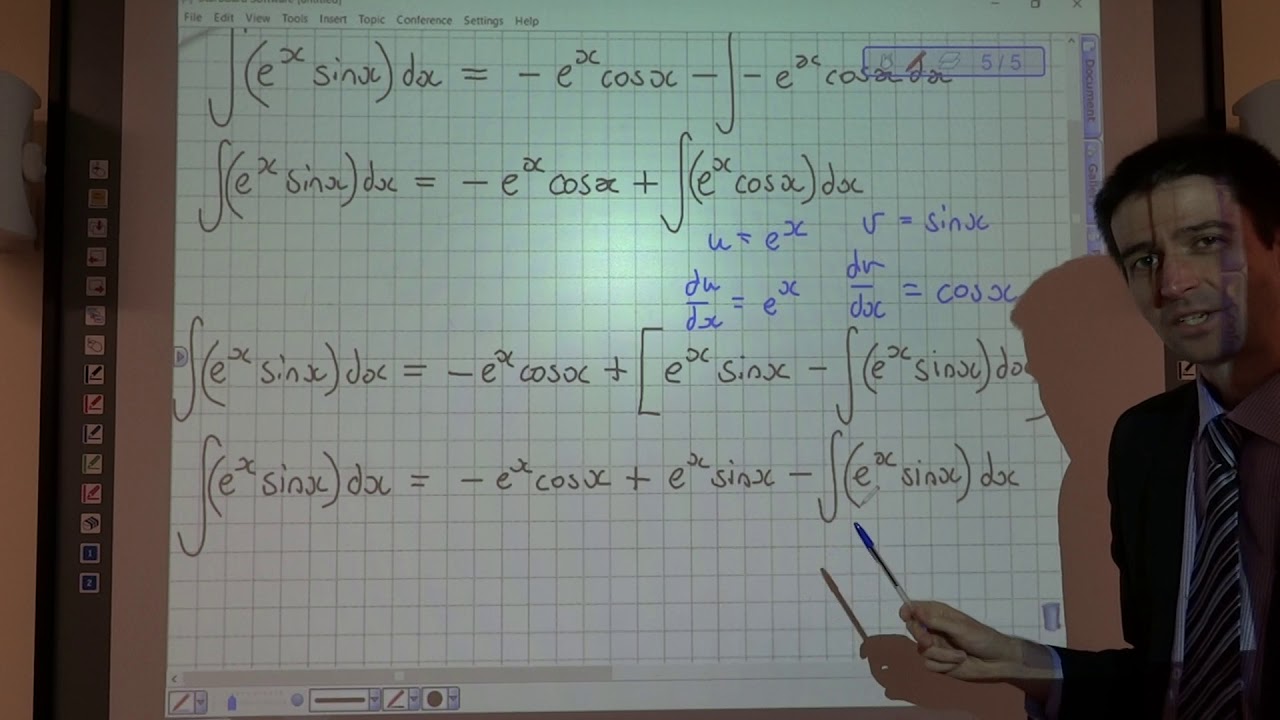 File Edit View Tools Insert Topic Conference Settings Help
∫(eˣ sinx)dx = - eˣ cosx - ∫ - eˣ cosx dx
5/5
Document
∫(eˣ sinx)dx = - eˣ cosx + ∫(eˣ cosx)dx
u = eˣ v = sinx
du/dx = eˣ dv/dx = cosx
∫(eˣ sinx)dx = -eˣ cosx + [eˣ sinx - ∫(eˣ sinx)dx
∫(eˣ sinx)dx = - eˣ cosx + eˣ sinx - ∫(eˣ sinx)dx
1
2